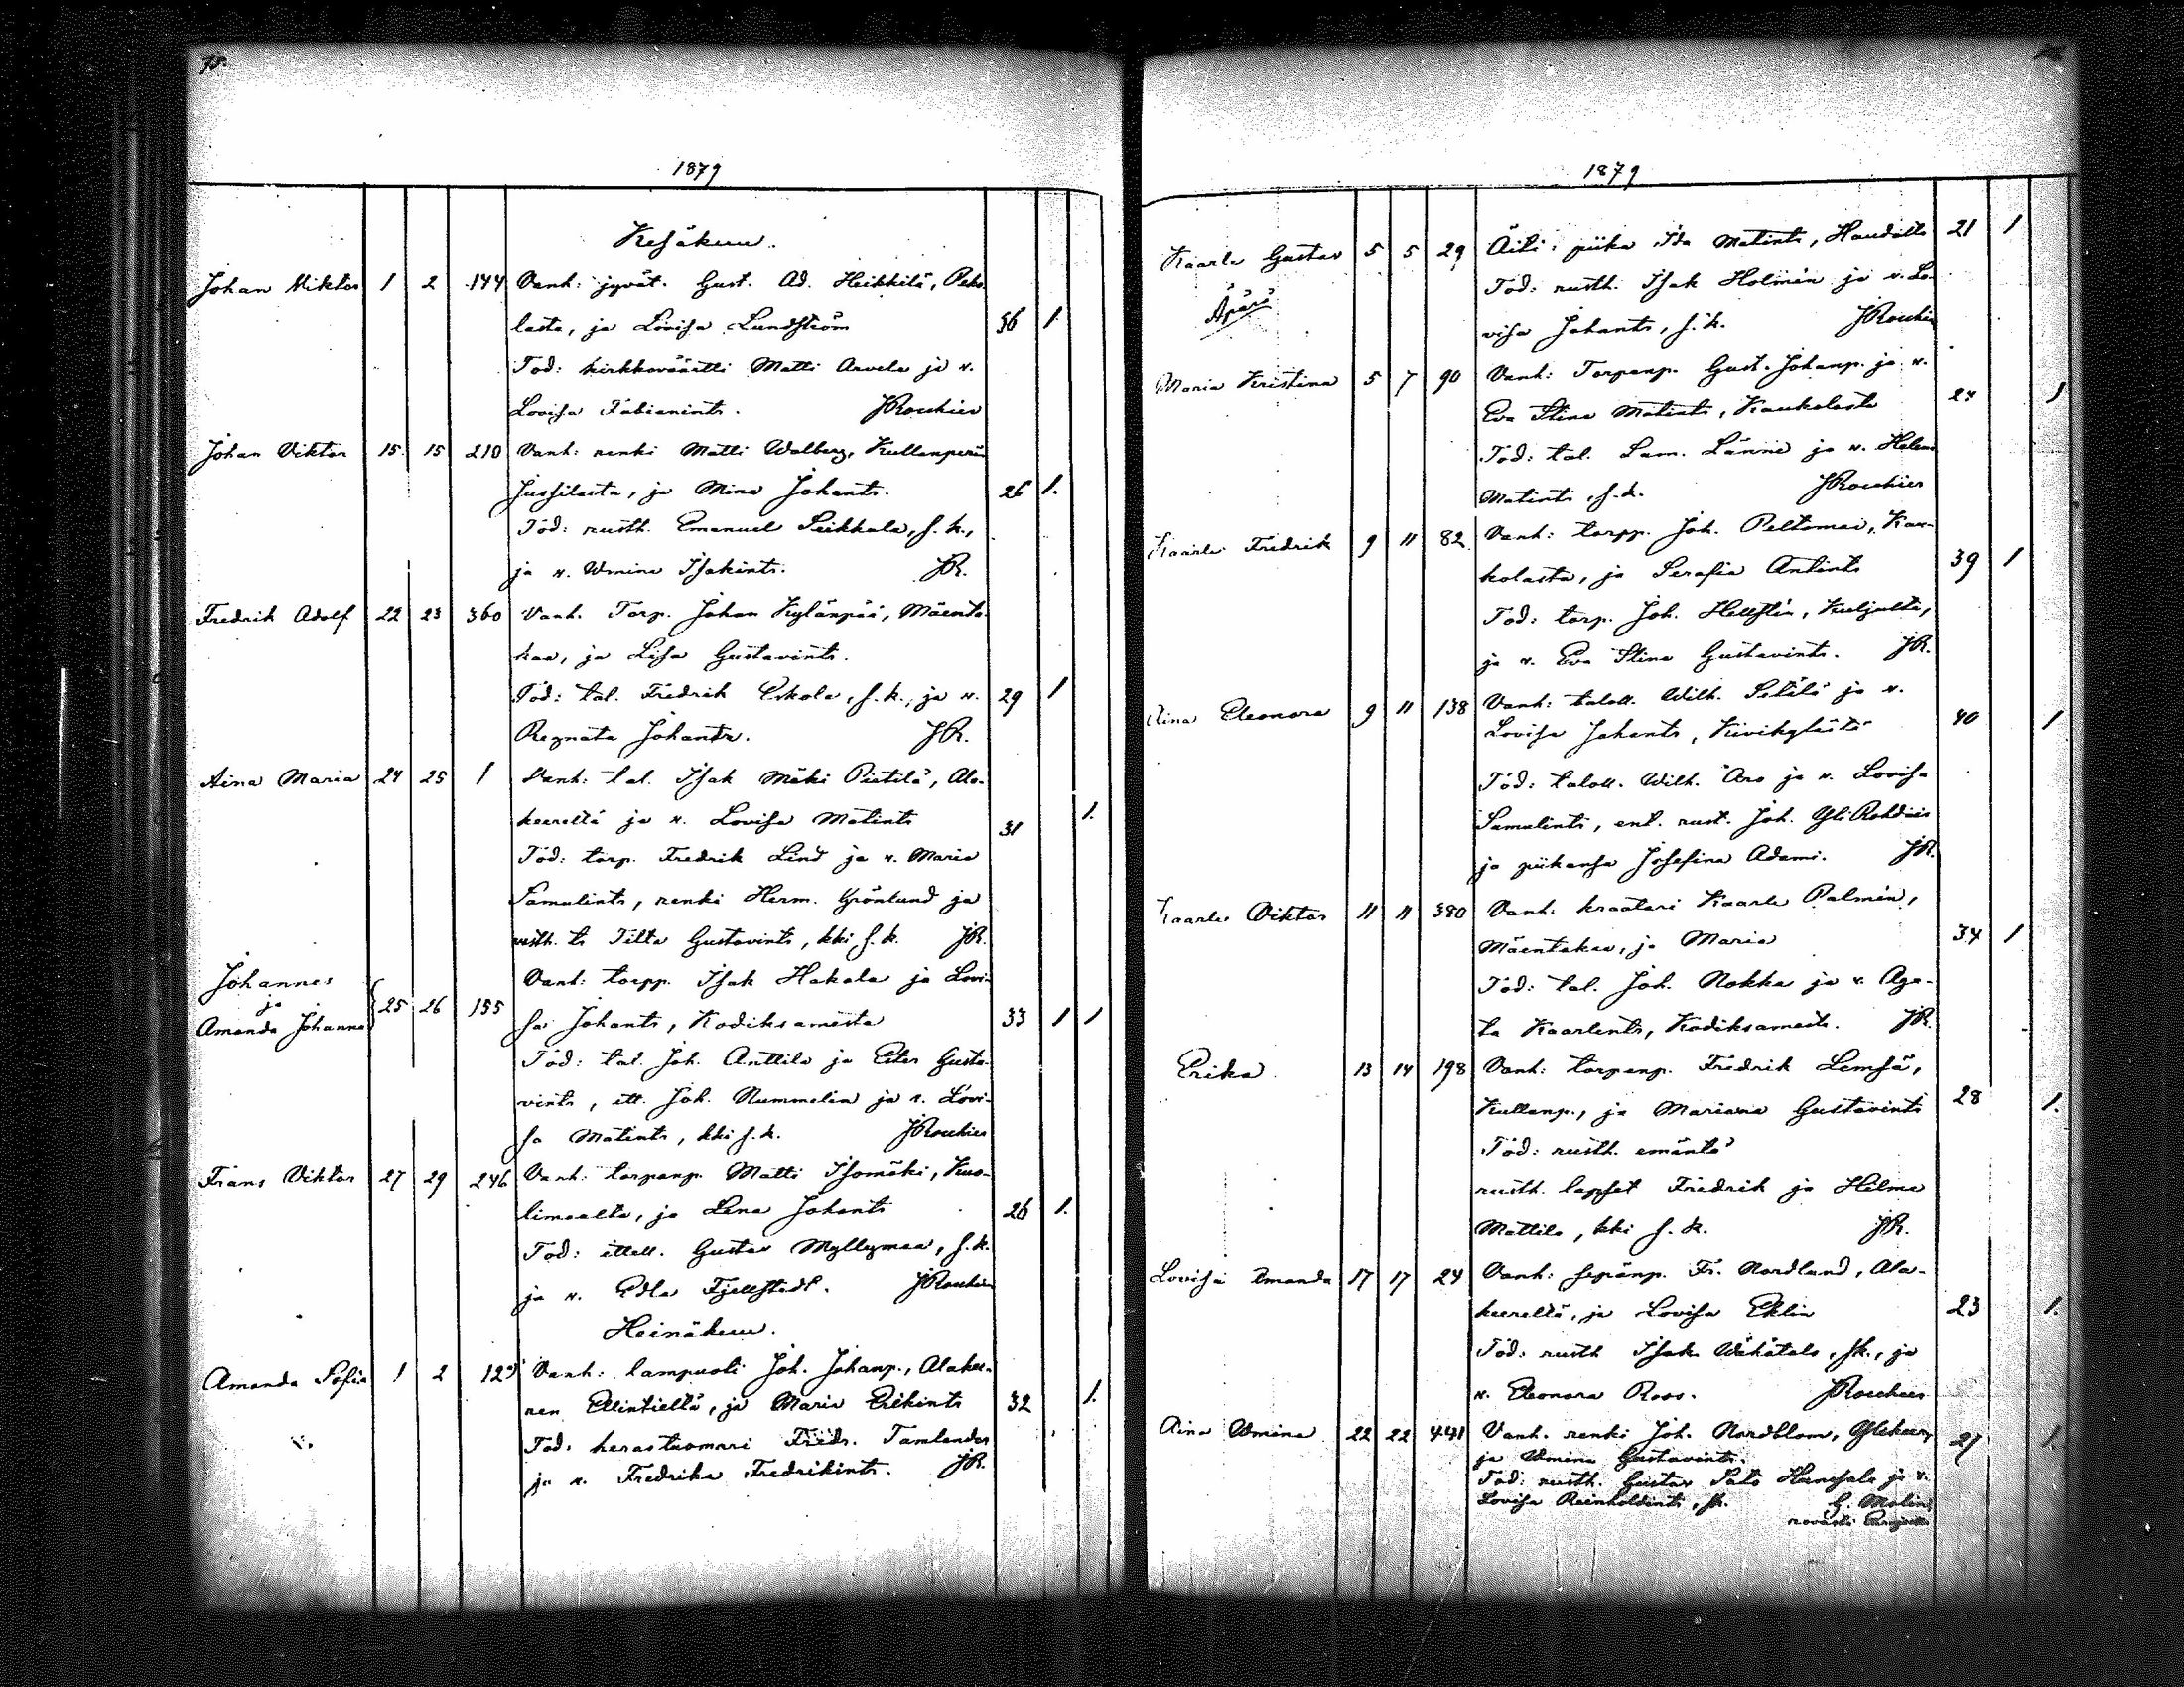 75.
1879
Kesäkuu.
Johan Viktor 1 2 144 Vanh: jyvät. Gust. Ad. Heikkilä, Peko
lasta, ja Lovisa Lundström 36 1.
Tod: kirkkoväärti Matti Arvela ja v.
Lovisa Fabianint. JRoukier
Johan Viktor 15 15 210 Vanh: renki Matti Walberg, Kullanperä
Jussilasta, ja Mina Johants. 26 1.
Tod: rusth. Emanuel Seikkala, s. k.,
ja v. Wmina Isakints. JR.
Fredrik Adolf 22 23 360 Vanh. Torp. Johan Kylänpää, Mäenta
kaa, ja Lisa Gustavints.
Tod: tal. Fredrik Eskola, s. k., ja v. 29 1
Regnata Johants. JR.
Aina Maria 24 25 1 Vanh: tal. Isak Mäki Pietilä, Ala-
keereltä ja v. Lovisa Matints 31 1.
Tod: torp. Fredrik Lind ja v. Maria
Samulints, renki Herm. Grönlund ja
rusth. ts Tilta Gustavints, kki s. k. JR.
Johannes
ja
Amanda Johanna 25 26 155 Vanh: torpp. Isak Hakala ja Lovi-
sa Johants, Kodiksamista 33 1 1
Tod: tal. Joh. Anttila ja Eter Gusta-
vints, itt. Joh. Nummelin ja v. Lovi-
sa Matints, kki s. k. JRoukier
Frans Viktor 27 29 246 Vanh: torpanp. Matti Isomäki, Kuo-
limaalta, ja Lena Johants 26 1.
Tod: ittell. Gustav Myllymaa, s. k.
ja v. Edla Fjellstedt. JRoukier
Heinäkuu.
Amanda Sofia 1 2 125 Vanh: lampuoti Joh. Johanp., Alakee-
ren Elintieltä, ja Maria Erikints 32 1.
Tod: herastuomari Fredr. Tamlander
ja v. Fredrika Fredrikints. JR.
1879
Kaarle Gustav 5 5 29 Äiti: piika Ida Matints, Haudalta 21 1
Äpärä
Tod: rusth. Isak Holmén ja v. Lo-
visa Johants, s. k. JRoukier
Maria Kristina 5 7 90 Vanh: Torpanp. Gust. Johanp. ja v.
Eva Stina Matints, Kaukolasta 24 1
Tod: tal. Sam. Länne ja v. Helena
Matints, s. k. JRoukier
Kaarle Fredrik 9 11 82 Vanh: torpp. Joh. Peltomaa, Kau-
kolasta, ja Serafia Antints 39 1
Tod: torp. Joh. Hellstén, Kuljulta,
ja v. Eva Stina Gustavints. JR.
Aina Eleonora 9 11 138 Vanh: taloll. Wilh. Setälä ja v.
Lovisa Johants, Kivikylästä 40 1
Tod: taloll. Wilh. Aro ja v. Lovisa
Samulints, ent. rust. Joh. Yli Rohdain
ja piikansa Josefina Adami. JR.
Kaarle Viktor 11 11 380 Vanh. kraatari Kaarle Palmén,
Mäentakaa, ja Maria 34 1
Tod: tal. Joh. Nokka ja v. Aga-
ta Kaarlents, Kodiksamests. JR.
Erika 13 14 198 Vanh: torpanp. Fredrik Lemsä,
Kullanp., ja Mariana Gustavints 28 1.
Tod: rusth. emäntä
rusth. lapset Fredrik ja Helma
Mattila, kki s. k. JR.
Lovisa Amanda 17 17 24 Vanh: sepänp. Fr. Nordlund, Ala-
keereltä, ja Lovisa Eklin 23 1.
Tod: rusth Isak Wähätalo, sk., ja
v. Eleonora Roos. JRoukier
Aina Wmina 22 22 441 Vanh. renki Joh. Nordblom, Ylikeer,
ja Wmina Gustavints. 27 1
Tod: rusth. Gustav Sato Hannsala ja v.
Lovisa Reinholdints, sk. G. Molin,
rovasti